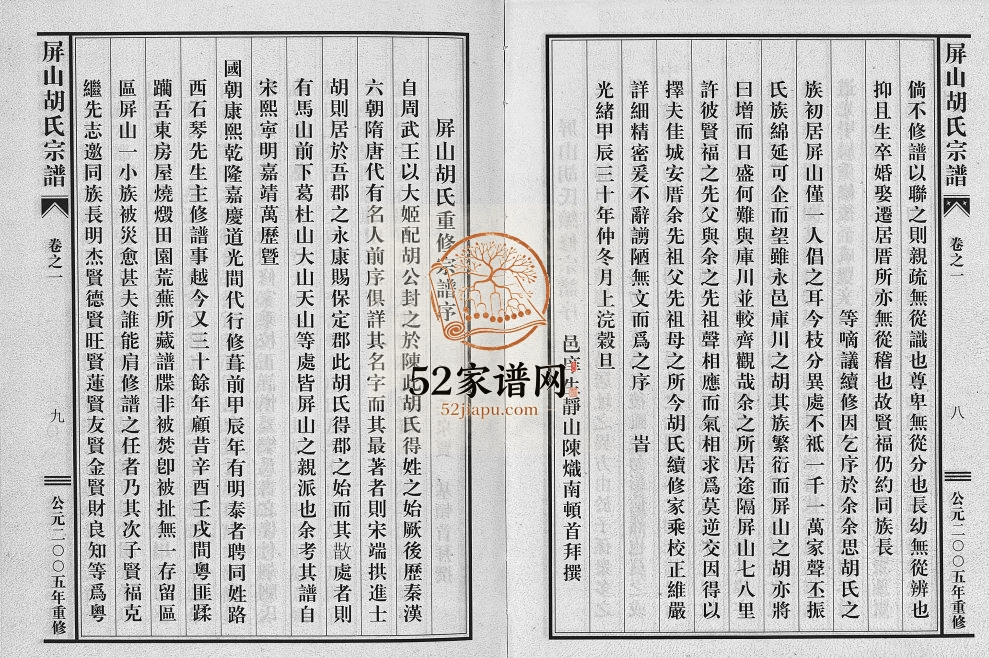 屏山胡氏宗譜
卷之一
八
公元二〇〇五年重修
倘不修譜以聯之則親疏無從識也尊卑無從分也長幼無從辨也
抑且生卒婚娶遷居厝所亦無從稽也故賢福仍約同族長
等嘀議續修因乞序於余余思胡氏之
族初居屏山僅一人倡之耳今枝分異處不祇一千一萬家聲丕振
氏族綿延可企而望雖永邑庫川之胡其族繁衍而屏山之胡亦將
日增而日盛何難與庫川並較齊觀哉余之所居途隔屏山七八里
許彼賢福之先父與余之先祖聲相應而氣相求爲莫逆交因得以
擇夫佳城安厝余先祖父先祖母之所今胡氏續修家乘校正維嚴
詳細精密爰不辭謭陋無文而爲之序 旹
光緒甲辰三十年仲冬月上浣穀旦
邑庠生靜山陳熾南頓首拜撰
屏山胡氏重修宗譜序
自周武王以大姬配胡公封之於陳此胡氏得姓之始厥後歷秦漢
六朝隋唐代有名人前序俱詳其名字而其最著者則宋端拱進士
胡則居於吾郡之永康賜保定郡此胡氏得郡之始而其散處者則
有馬山前下葛杜山大山天山等處皆屏山之親派也余考其譜自
宋熙寧明嘉靖萬歷暨
國朝康熙乾隆嘉慶道光間代行修葺前甲辰年有明泰者聘同姓路
西石琴先生主修譜事越今又三十餘年顧昔辛酉壬戌間粵匪蹂
躪吾東房屋燒燬田園荒蕪所藏譜牒非被焚卽被扯無一存留區
區屏山一小族被災愈甚夫誰能肩修譜之任者乃其次子賢福克
繼先志邀同族長明杰賢德賢旺賢蓮賢友賢金賢財良知等爲粵
屏山胡氏宗譜
卷之一
九
公元二〇〇五年重修
52家谱网
52jiapu.com